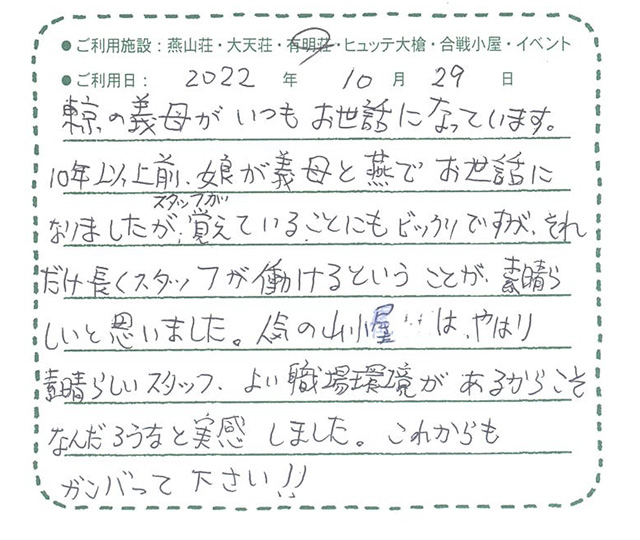 ●ご利用施設：燕山荘・大天荘・有明荘・ヒュッテ大槍・合戦小屋・イベント
●ご利用日： 2022 年 10 月 29 日
東京の義母がいつもお世話になっています。
10年以上前、娘が義母と燕でお世話に
スタッフが
なりましたが、覚えていることにもビックリですが、それ
だけ長くスタッフが働けるということが、素晴ら
しいと思いました。人気の山小屋は、やはり
素晴らしいスタッフ、よい職場環境があるからこそ
なんだろうなと実感しました。これからも
ガンバって下さい!!